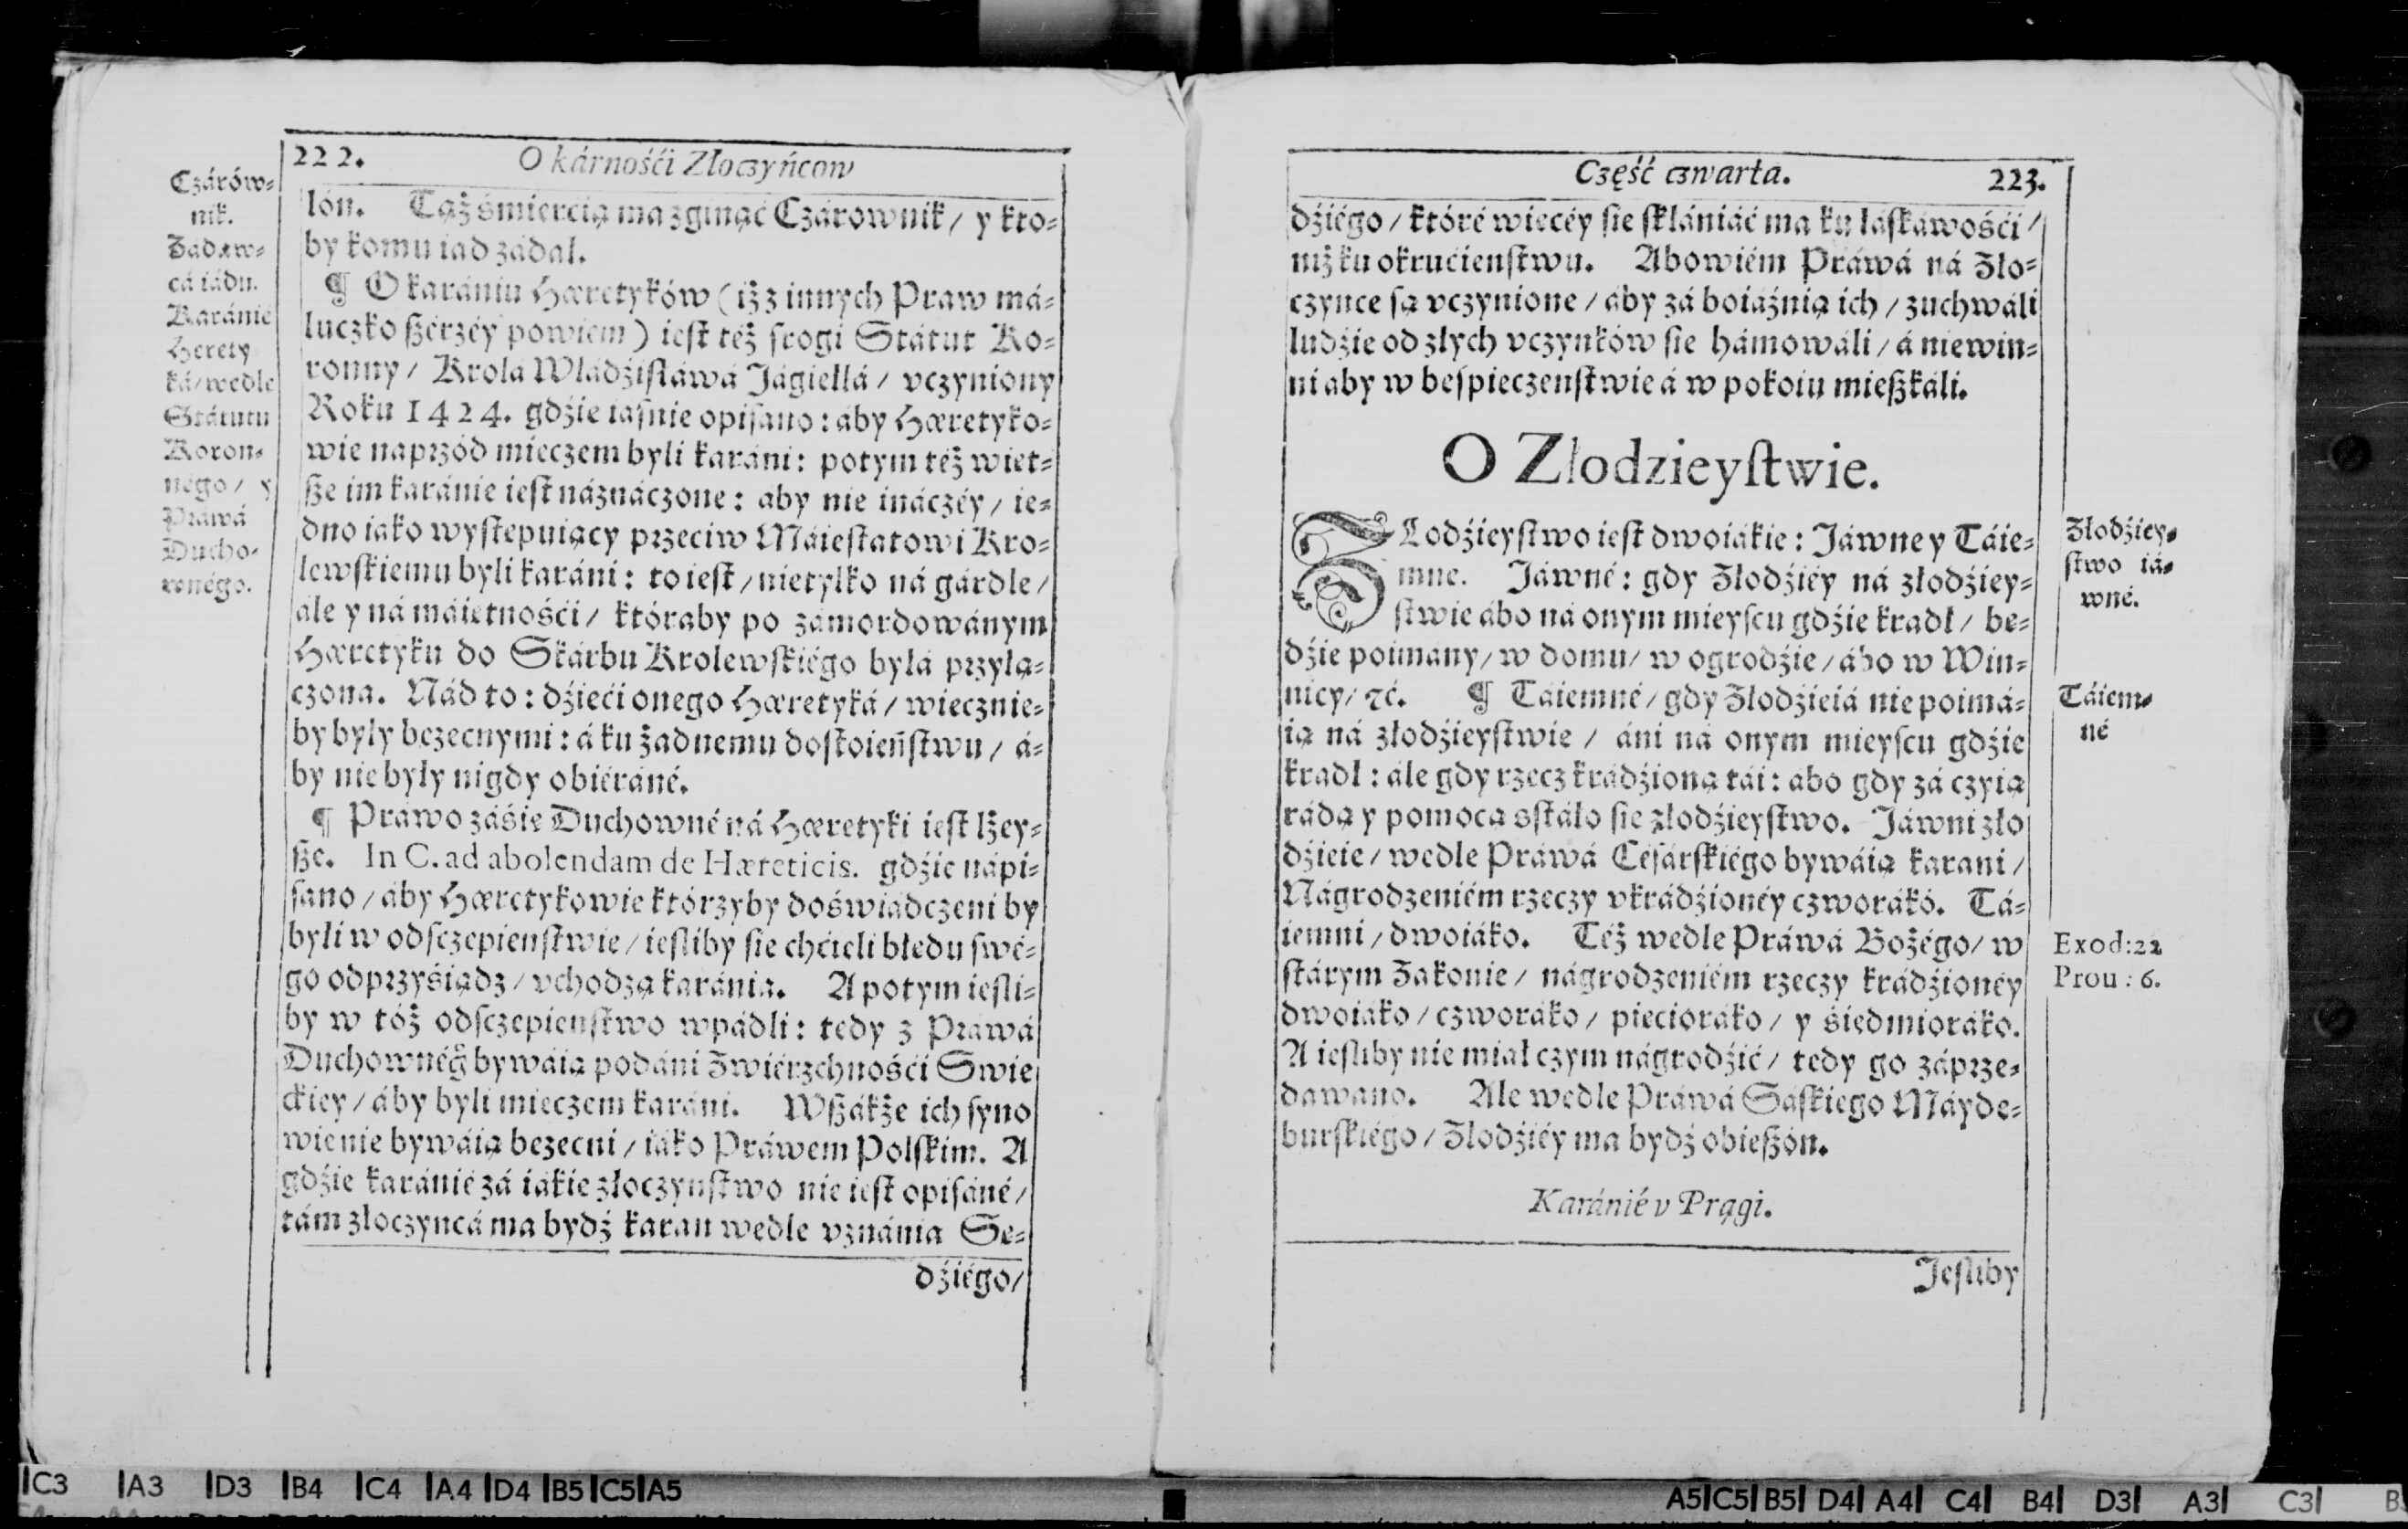 222. O kárnośći Złoczyńcow
Czárów-
nik.
Zadaw-
cá iádu.
Karánie
Herety
ká/ wedle
Státutu
Koron-
négo/ y
Práwá
Ducho-
wnégo.
lón. Tąż śmiercią ma zginąć Czárownik/ y kto-
by komu iad zádał.
¶ O karániu Hæretyków (iż z innych Praw má-
luczko ſzérzéy powiem) ieſt téż ſrogi Státut Ko-
ronny/ Krolá Włádźiſłáwá Jágiełłá/ vczyniony
Roku 1424. gdźie iáſnie opiſano: áby Hæretyko-
wie naprzód mieczem byli karáni: potym téż wiet-
ſze im karánie ieſt náznáczone: aby nie ináczéy/ ie-
dno iako wyſtepuiący przeciw Máieſtatowi Kro-
lewſkiemu byli karáni: to ieſt/ nietylko ná gárdle/
ále y ná máietnośći/ któraby po zámordowánym
Hæretyku do Skárbu Krolewſkiégo byłá przyłą-
czona. Nád to: dźieći onego Hæretyká/ wiecznie-
by były bezecnymi: á ku żadnemu doſtoieńſtwu/ á-
by nie były nigdy obiéráné.
¶ Práwo záśie Duchowné ná Hæretyki ieſt lżey-
ſze. In C. ad abolendam de Hæreticis. gdźie nápi-
ſano/ áby Hæretykowie którzyby doświádczeni by
byli w odſczepieńſtwie/ ieſliby ſie chćieli błedu ſwé-
go odprzyśiądz/ vchodzą karánia. A potym ieſli-
by w tóż odſczepieńſtwo wpádli: tedy z Práwá
Duchownég̃ bywáią podáni Zwiérzchnośći Swie
ckiey/ áby byli mieczem karáni. Wſzákże ich ſyno
wie nie bywáią bezecni/ iáko Práwem Polſkim. A
gdźie karánié zá iákie złoczyńſtwo nie ieſt opiſáné/
tám złoczyńcá ma bydź karan wedle vznánia Se-
dźiégo/
Część czwarta. 223.
dźiégo/ któré wiecéy ſie ſkłániáć ma ku łáſkáwośći/
niż ku okrućieńſtwu. Abowiém Práwá ná Zło-
czyńce ſą vczynione/ áby zá boiáźnią ich/ zuchwáli
ludźie od złych vczynków ſie hámowáli/ á niewin-
ni aby w beſpieczeńſtwie á w pokoiu mieſzkáli.
O Złodzieyſtwie.
ZŁodźieyſtwo ieſt dwoiákie: Jáwne y Táie-
mne. Jáwné: gdy Złodźiéy ná złodźiey-
ſtwie ábo ná onym mieyſcu gdźie kradł/ be-
dźie poimány/ w domu/ w ogrodźie/ ábo w Win-
nicy/ ꝛć. ¶ Táiemné/ gdy Złodźieiá nie poimá-
ią ná złodźieyſtwie/ áni ná onym mieyſcu gdźie
kradł: ále gdy rzecz krádźioną tái: ábo gdy zá czyią
rádą y pomocą sſtáło ſie złodźieyſtwo. Jáwni zło
dźieie/ wedle Práwá Céſárſkiégo bywáią karani/
Nágrodzeniém rzeczy vkrádźionéy czworákó. Tá-
iemni/ dwoiáko. Téż wedle Práwá Bożégo/ w
ſtárym Zakonie/ nágrodzeniém rzeczy krádźionéy
dwoiáko/ czworáko/ piecioráko/ y śiedmioráko.
A ieſliby nie miał czym nágrodźić/ tedy go záprze-
dawano. Ale wedle Práwá Sáſkiego Máyde-
burſkiégo/ Złodźiéy ma bydź obieſzón.
Karánié v Prągi.
Jeſliby
Złodźiey-
ſtwo iá-
wné.
Táiem-
né
Exod: 22
Prou: 6.
C3 A3 D3 B4 C4 A4 D4 B5 C5 A5
A5 C5 B5 D4 A4 C4 B4 D3 A3 C3